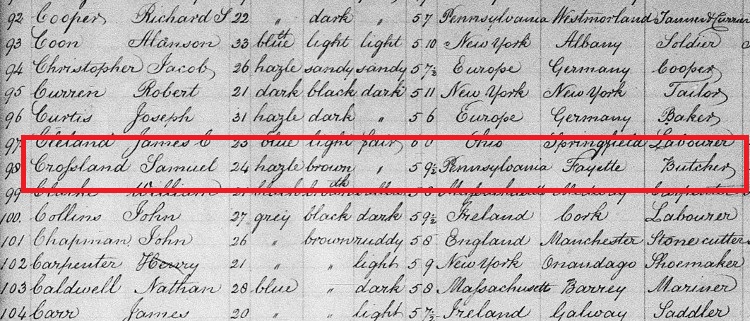 92 Cooper Richard S 22 " dark " 5 7 Pennsylvania Westmorland Tanner & Currier
93 Coon Alanson 33 blue light light 5 10 New York Albany Soldier
94 Christopher Jacob 26 hazle sandy sandy 5 7½ Europe Germany Cooper
95 Curren Robert 21 dark black dark 5 11 New York New York Tailor
96 Curtis Joseph 31 hazle dark " 5 6 Europe Germany Baker
97 Cleland James C 23 blue light fair 6 0 Ohio Springfield Labourer
98 Crossland Samuel 24 hazle brown " 5 9½ Pennsylvania Fayette Butcher
99 William 5 8 Massachusetts Carpenter
100 Collins John 27 grey black dark 5 9½ Ireland Cork Labourer
101 Chapman John 26 " brown ruddy 5 8 England Manchester Stone cutter
102 Carpenter Henry 21 " " light 5 9 New York Onandago Shoemaker
103 Caldwell Nathan 28 blue " dark 5 8 Massachusetts Barrey Mariner
104 Carr James 20 " " light 5 7½ Ireland Galway Saddler